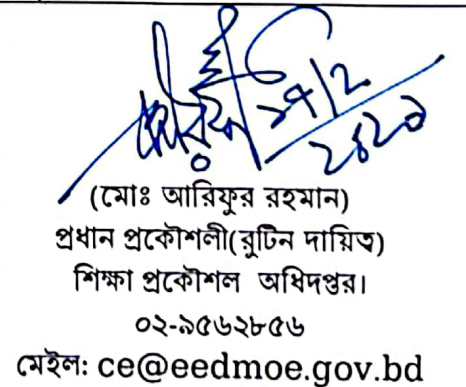 (মোঃ আরিফুর রহমান)
প্রধান প্রকৌশলী(রুটিন দায়িত্ব)
শিক্ষা প্রকৌশল অধিদপ্তর।
০২-৯৫৬২৮৫৬
মেইল: ce@eedmoe.gov.bd